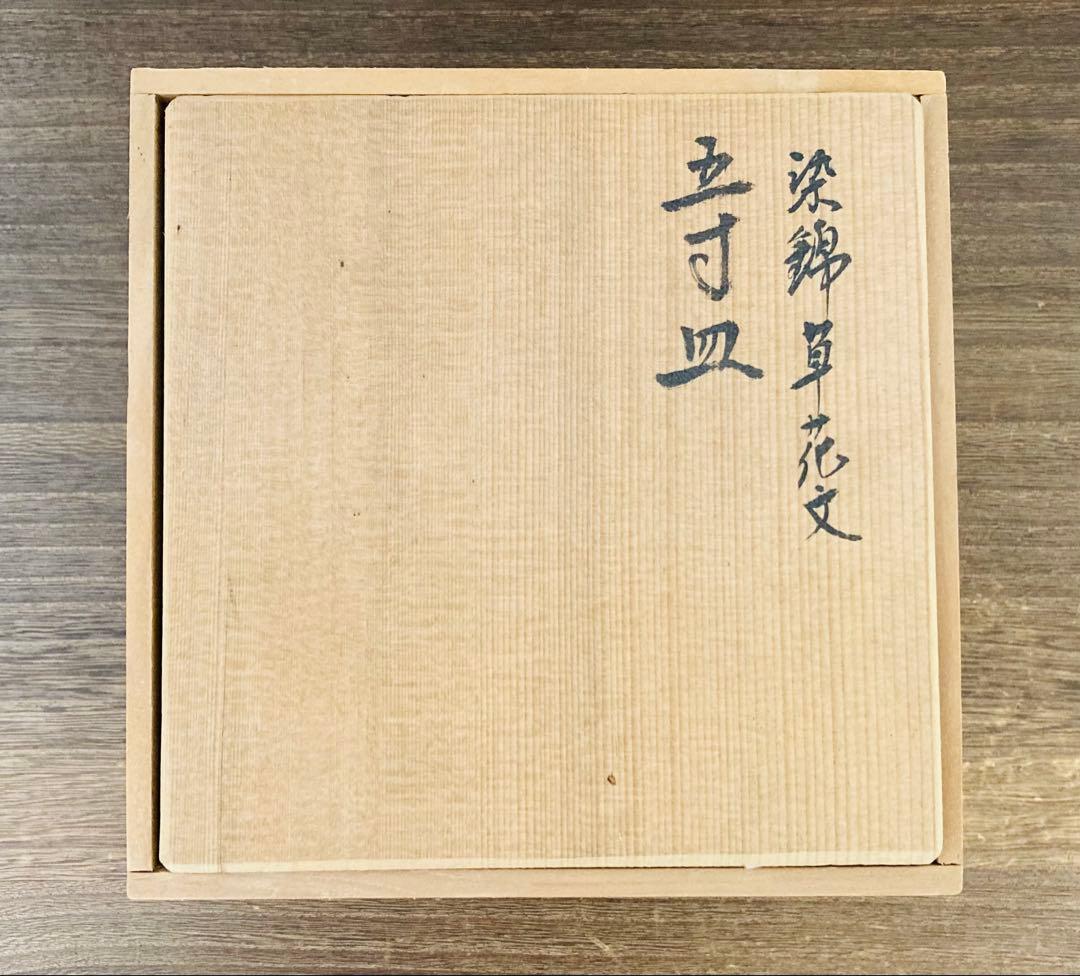 染錦草花文
五寸皿